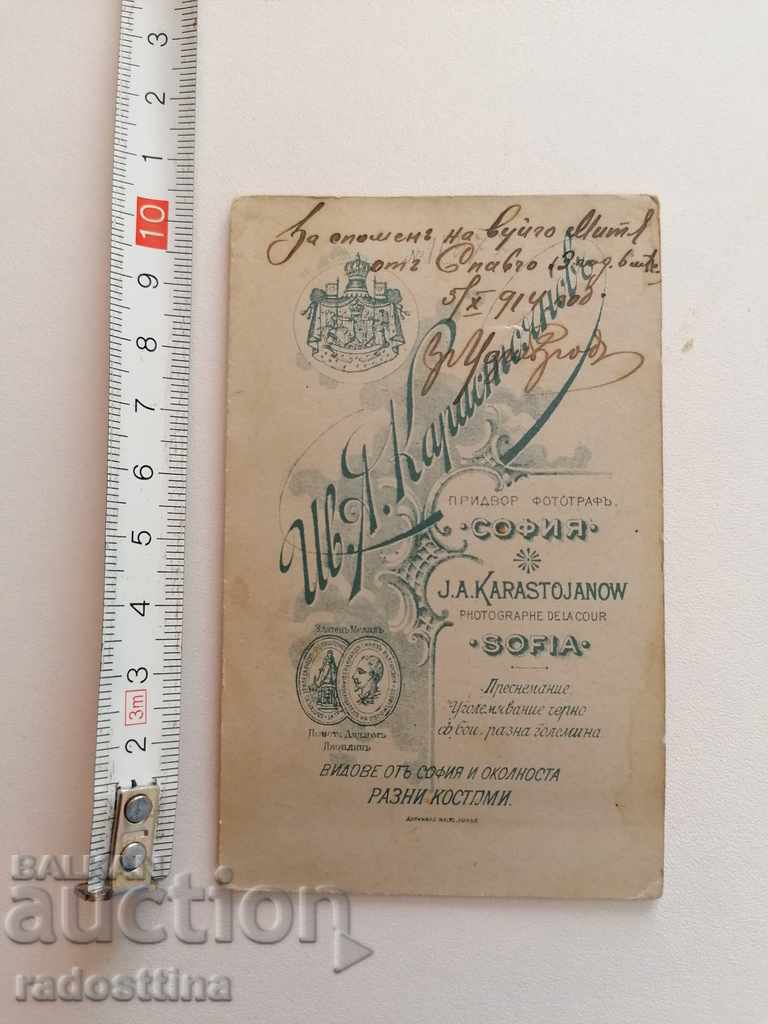 За споменъ на вуйчо Митя
отъ Славчо
5/X 914 год.
Ив. А. Карастояновъ
ПРИДВОР ФОТОГРАФЪ.
·СОФИЯ·
J.A.KARASTOJANOW
PHOTOGRAPHE DE LA COUR
·SOFIA·
Златенъ Медалъ
Почетъ Дипломъ
Пловдивъ
Преснемание
Уголемявание черно
ф, бои, разна големина
ВИДОВЕ ОТЪ СОФИЯ И ОКОЛНОСТА
РАЗНИ КОСТЮМИ.
3
2
1
10
9
8
7
6
5
4
3
3m
2
BALKAN
auction
radosttina